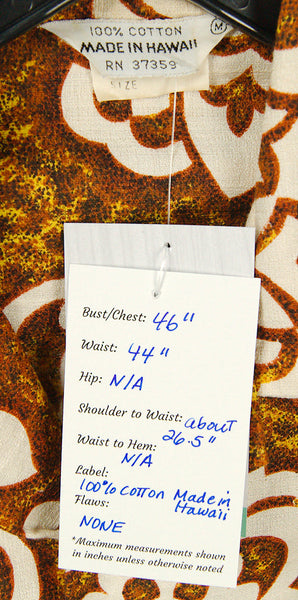 100% COTTON
MADE IN HAWAII
RN 37359
SIZE
M
Bust/Chest: 46"
Waist: 44"
Hip: N/A
Shoulder to Waist: about
26.5"
Waist to Hem:
N/A
Label:
100% Cotton Made in
Hawaii
Flaws:
NONE
*Maximum measurements shown
in inches unless otherwise noted